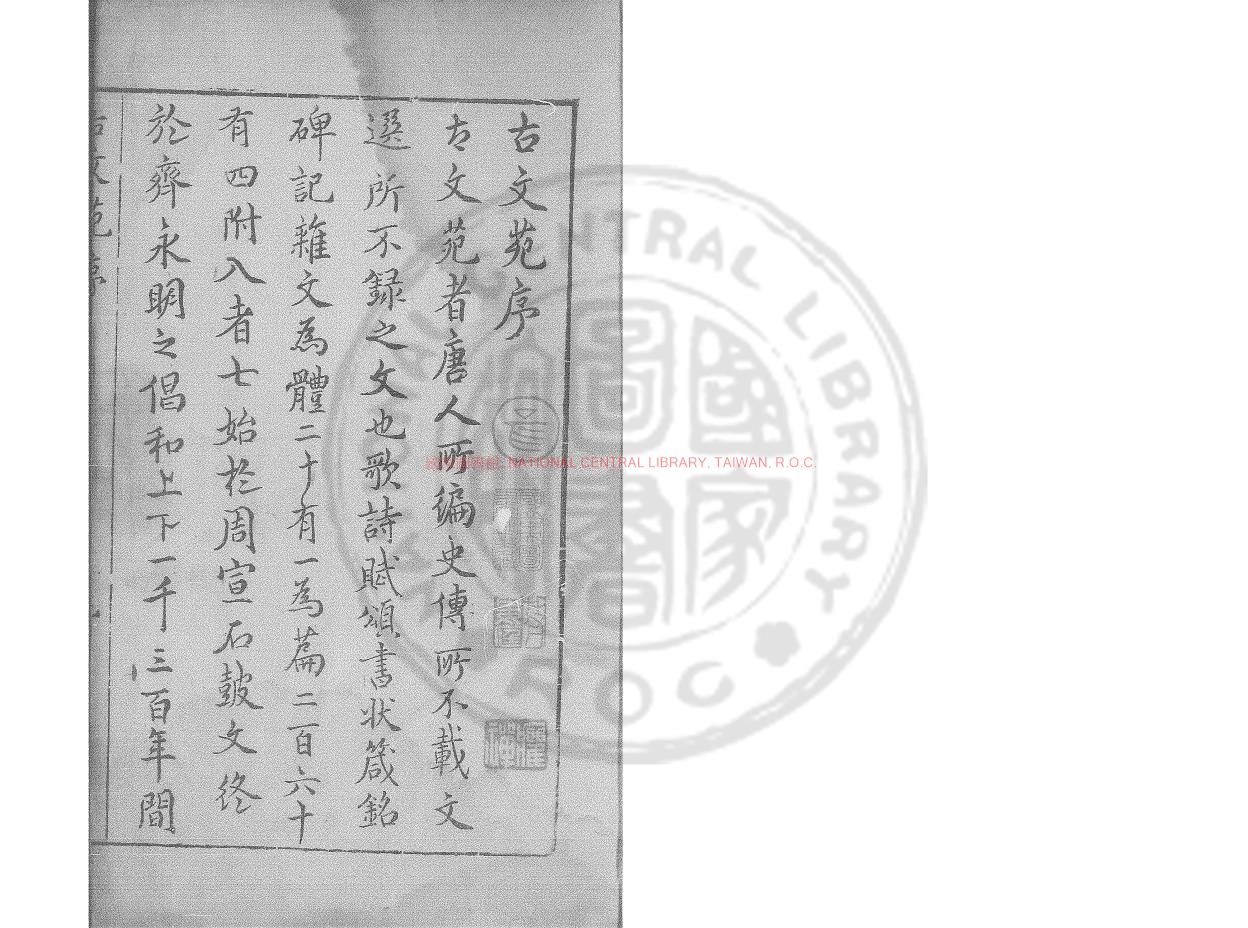 古文苑序
古文苑者唐人所編史傳所不載文
選所不録之文也歌詩賦頌書状箴銘
碑記雜文為體二十有一為篇二百六十
有四附入者七始於周宣石鼓文終
於齊永明之倡和上下一千三百年間
古文苑序
國家圖書館 NATIONAL CENTRAL LIBRARY, TAIWAN, R.O.C.
CENTRAL LIBRARY
ROC
國家圖書